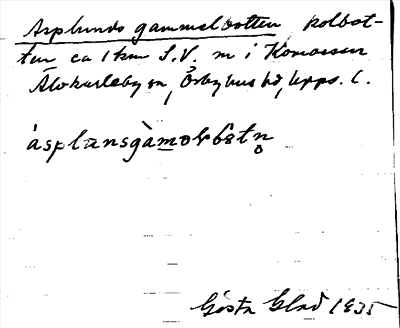 Asplunds gammelbotten kolbot-
ten ca 1 km S.V. m i
Älvkarleby sn, Örbyhus hd, Upps. l.
ásplansgàməlbåtn̥
Gösta Glad 1935